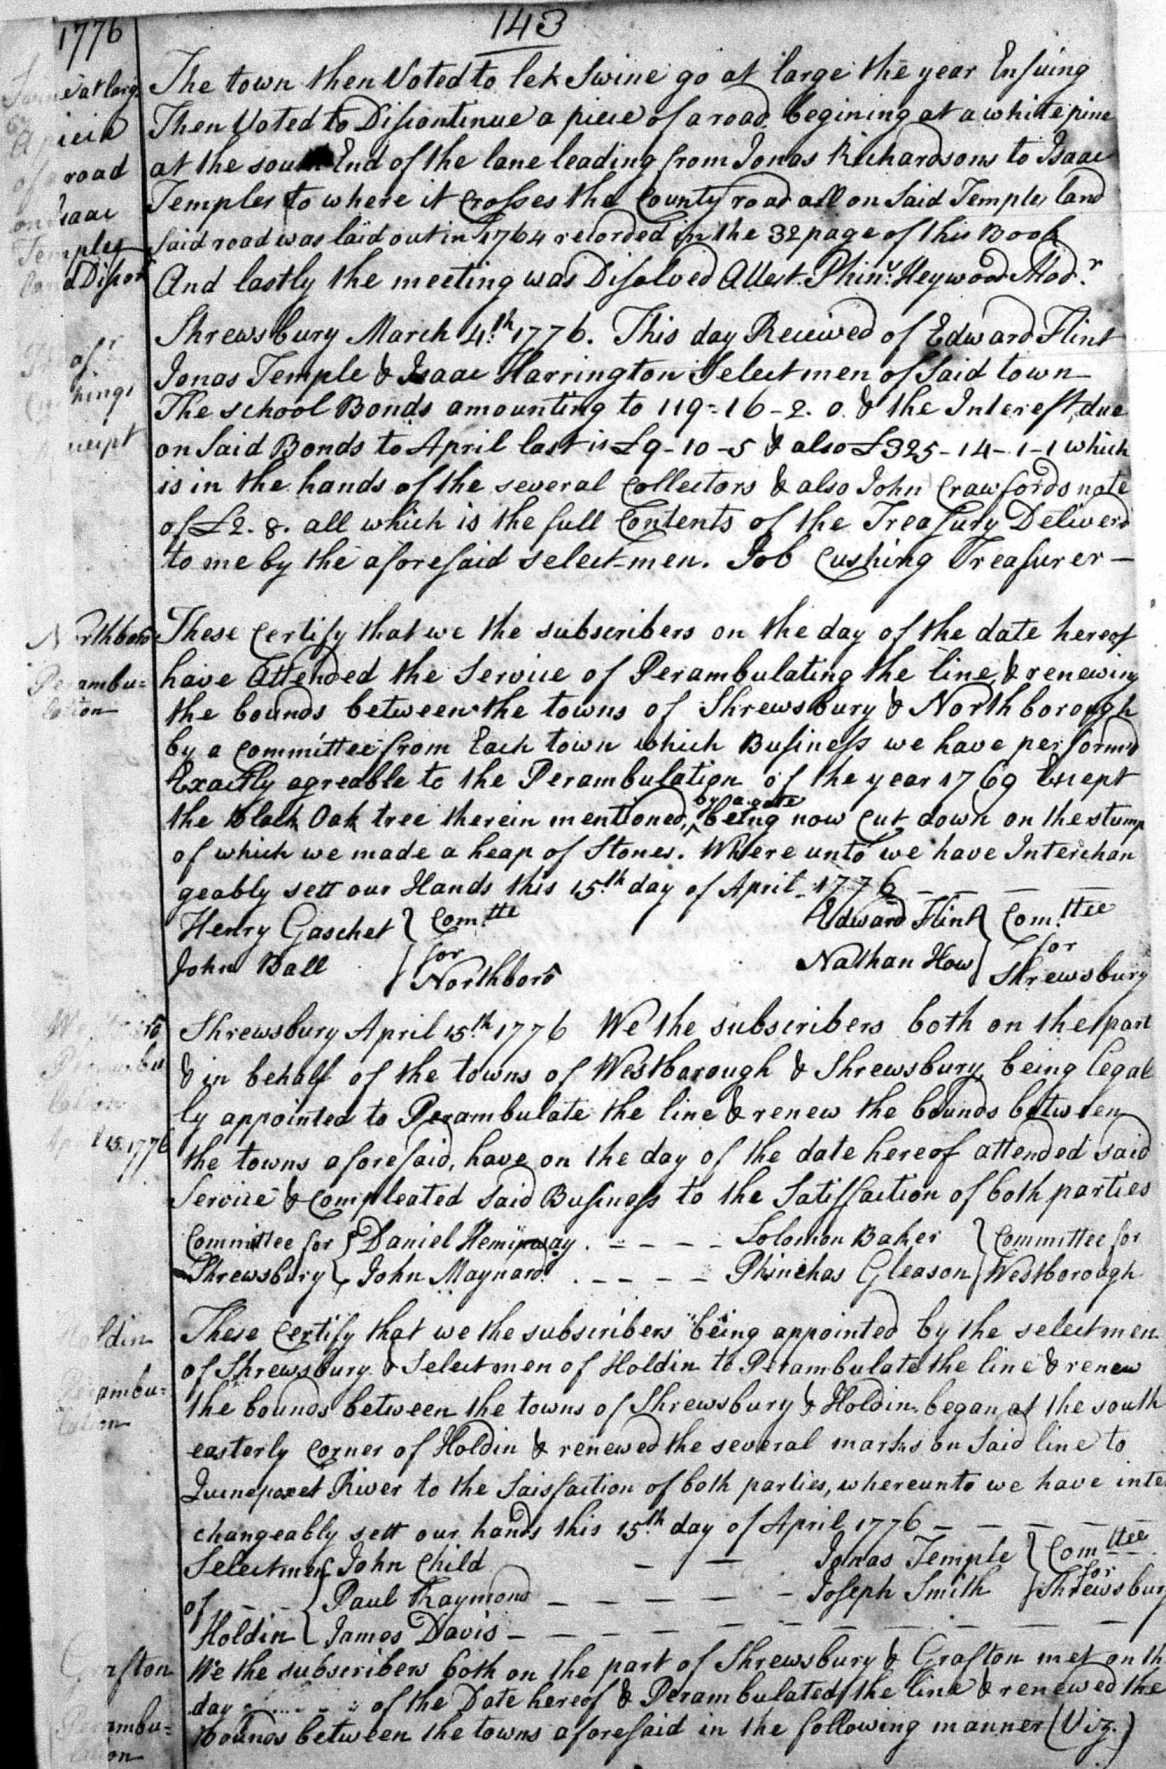 1776
143
The town then Voted to let Swine go at large the year Ensuing
Then Voted to Discontinue a piece of a road begining at a white pine
at the south End of the lane leading from Jonas Richardsons to Isaac
Temples to where it Crosses the County road all on Said Temples land
Said road was laid out in 1764 recorded in the 32 page of this Book
And lastly the meeting was Disolved Attest. Phins. Heywood Modr.
Shrewsbury March 4th. 1776. This day Received of Edward Flint
Jonas Temple & Isaac Harrington Select men of Said town
The school Bonds amounting to 119=16-2.0. & the Interest due
on Said Bonds to April last is £9-10-5 & also £325-14-1-1 which
is in the hands of the several Collectors & also John Crawfords note
of £2.8. all which is the full Contents of the Treasury Deliverd
to me by the aforesaid select-men. Job Cushing Treasurer—
Northboro
Perambu=
lation
These Certify that we the subscribers on the day of the date hereof
have Attended the Service of Perambulating the line & renewing
the bounds between the towns of Shrewsbury & Northborough
by a Committee from Each town which Business we have performd
Exactly agreable to the Perambulation of the year 1769 Except
by a gate
the black Oak tree therein mentioned, ^ being now Cut down on the stump
of which we made a heap of Stones. Where unto we have Interchan
geably sett our Hands this 15th day of April 1776
Henry Gaschet } Comttee Edward Flint } Comttee
John Ball } for Northboro Nathan How } for Shrewsbury
April 15. 1776
Shrewsbury April 15th 1776 We the subscribers both on the part
& in behalf of the towns of Westborough & Shrewsbury being Legal
ly appointed to Perambulate the line & renew the bounds between
the towns aforesaid, have on the day of the date hereof attended said
Service & Compleated said Business to the Satisfaction of both parties
Committee for } Daniel Hemingway - - - - Solomon Baker } Committee for
Shrewsbury } John Maynard. - - - - Phinehas Gleason } Westborough
Holdin
Perambu=
lation
These Certify that we the subscribers being appointed by the selectmen
of Shrewsbury & Selectmen of Holdin to Perambulate the line & renew
the bounds between the towns of Shrewsbury & Holdin, began at the south
easterly Corner of Holdin & renewed the several marks on Said line to
Quinepoxet River to the Saisfaction of both parties, whereunto we have inter
changeably sett our hands this 15th day of April 1776
Selectmen John Child — — Jonas Temple } Comttee
of { Paul Raymond — — — Joseph Smith } for Shrewsbury
Holdin { James Davis — — —
Grafton
Perambu=
lation
We the subscribers both on the part of Shrewsbury & Grafton met on the
day of the Date hereof & Perambulated the line & renewed the
bounds between the towns aforesaid in the following manner (Viz.)